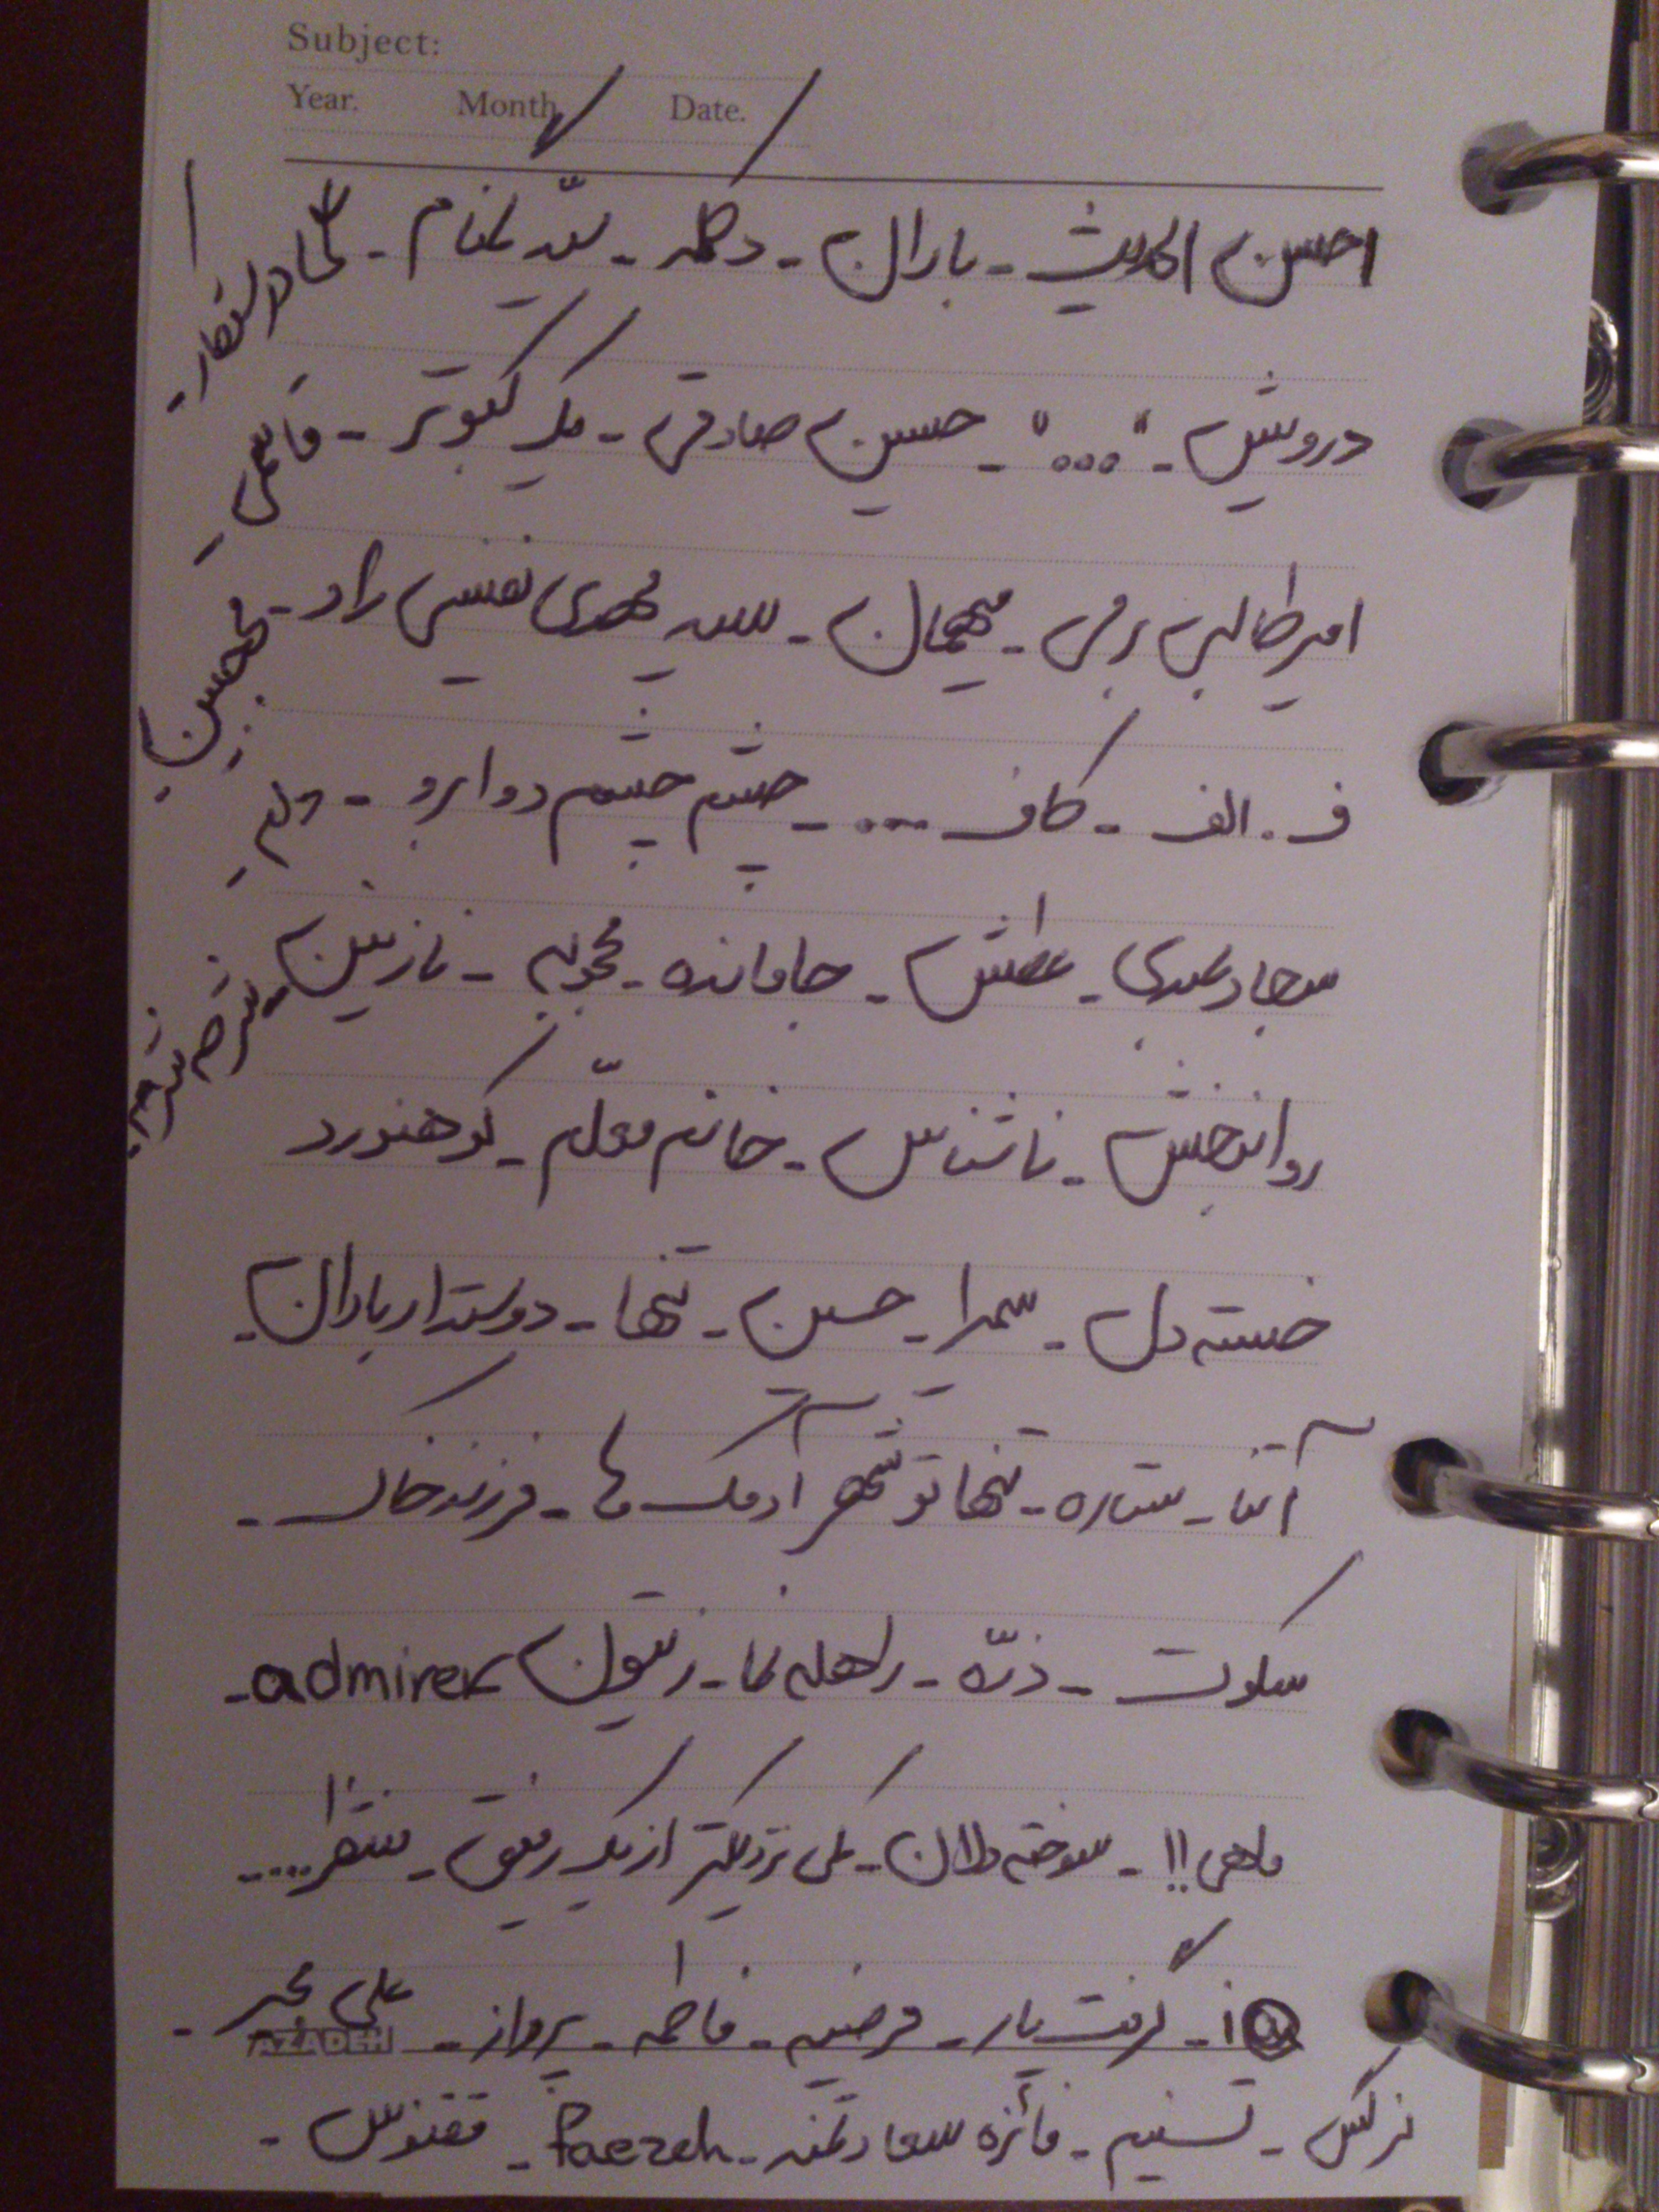 Subject:
Year. Month. Date.
احسن الحدیث - باران - دکمه - سیّد گمنام -
درویش - "..." - حسین صادقی - یک کبوتر - قاسمی -
امیر طالبی رقی - میهمان - سید مهدی نفیسی راد - مهجبین -
ف. الف - کاف ... - چشم چشم دو ابرو - مریم -
سجاد عبدی - عطش - جامانده - محبوبه - نازنین -
روانبخش - ناشناس - خانم معلّم - کوهنورد
خسته دل - سمیرا - حسین - تنها - دوستدار باران -
آتنا - ستاره - تنها تو شهر آدمک ها - فرزند خاک -
سکوت - ذرّه - راحله نما - زیتون admirer -
ماهی !! - سوخته دلان - کمی نزدیکتر از یک رفیق - منتظر ....
گرفت یار - مرضیه - فاطمه - پرواز - علی بحر -
AZADEH
نرگس - تسنیم - فائزه سعادتمند - Faezeh - ققنوس -